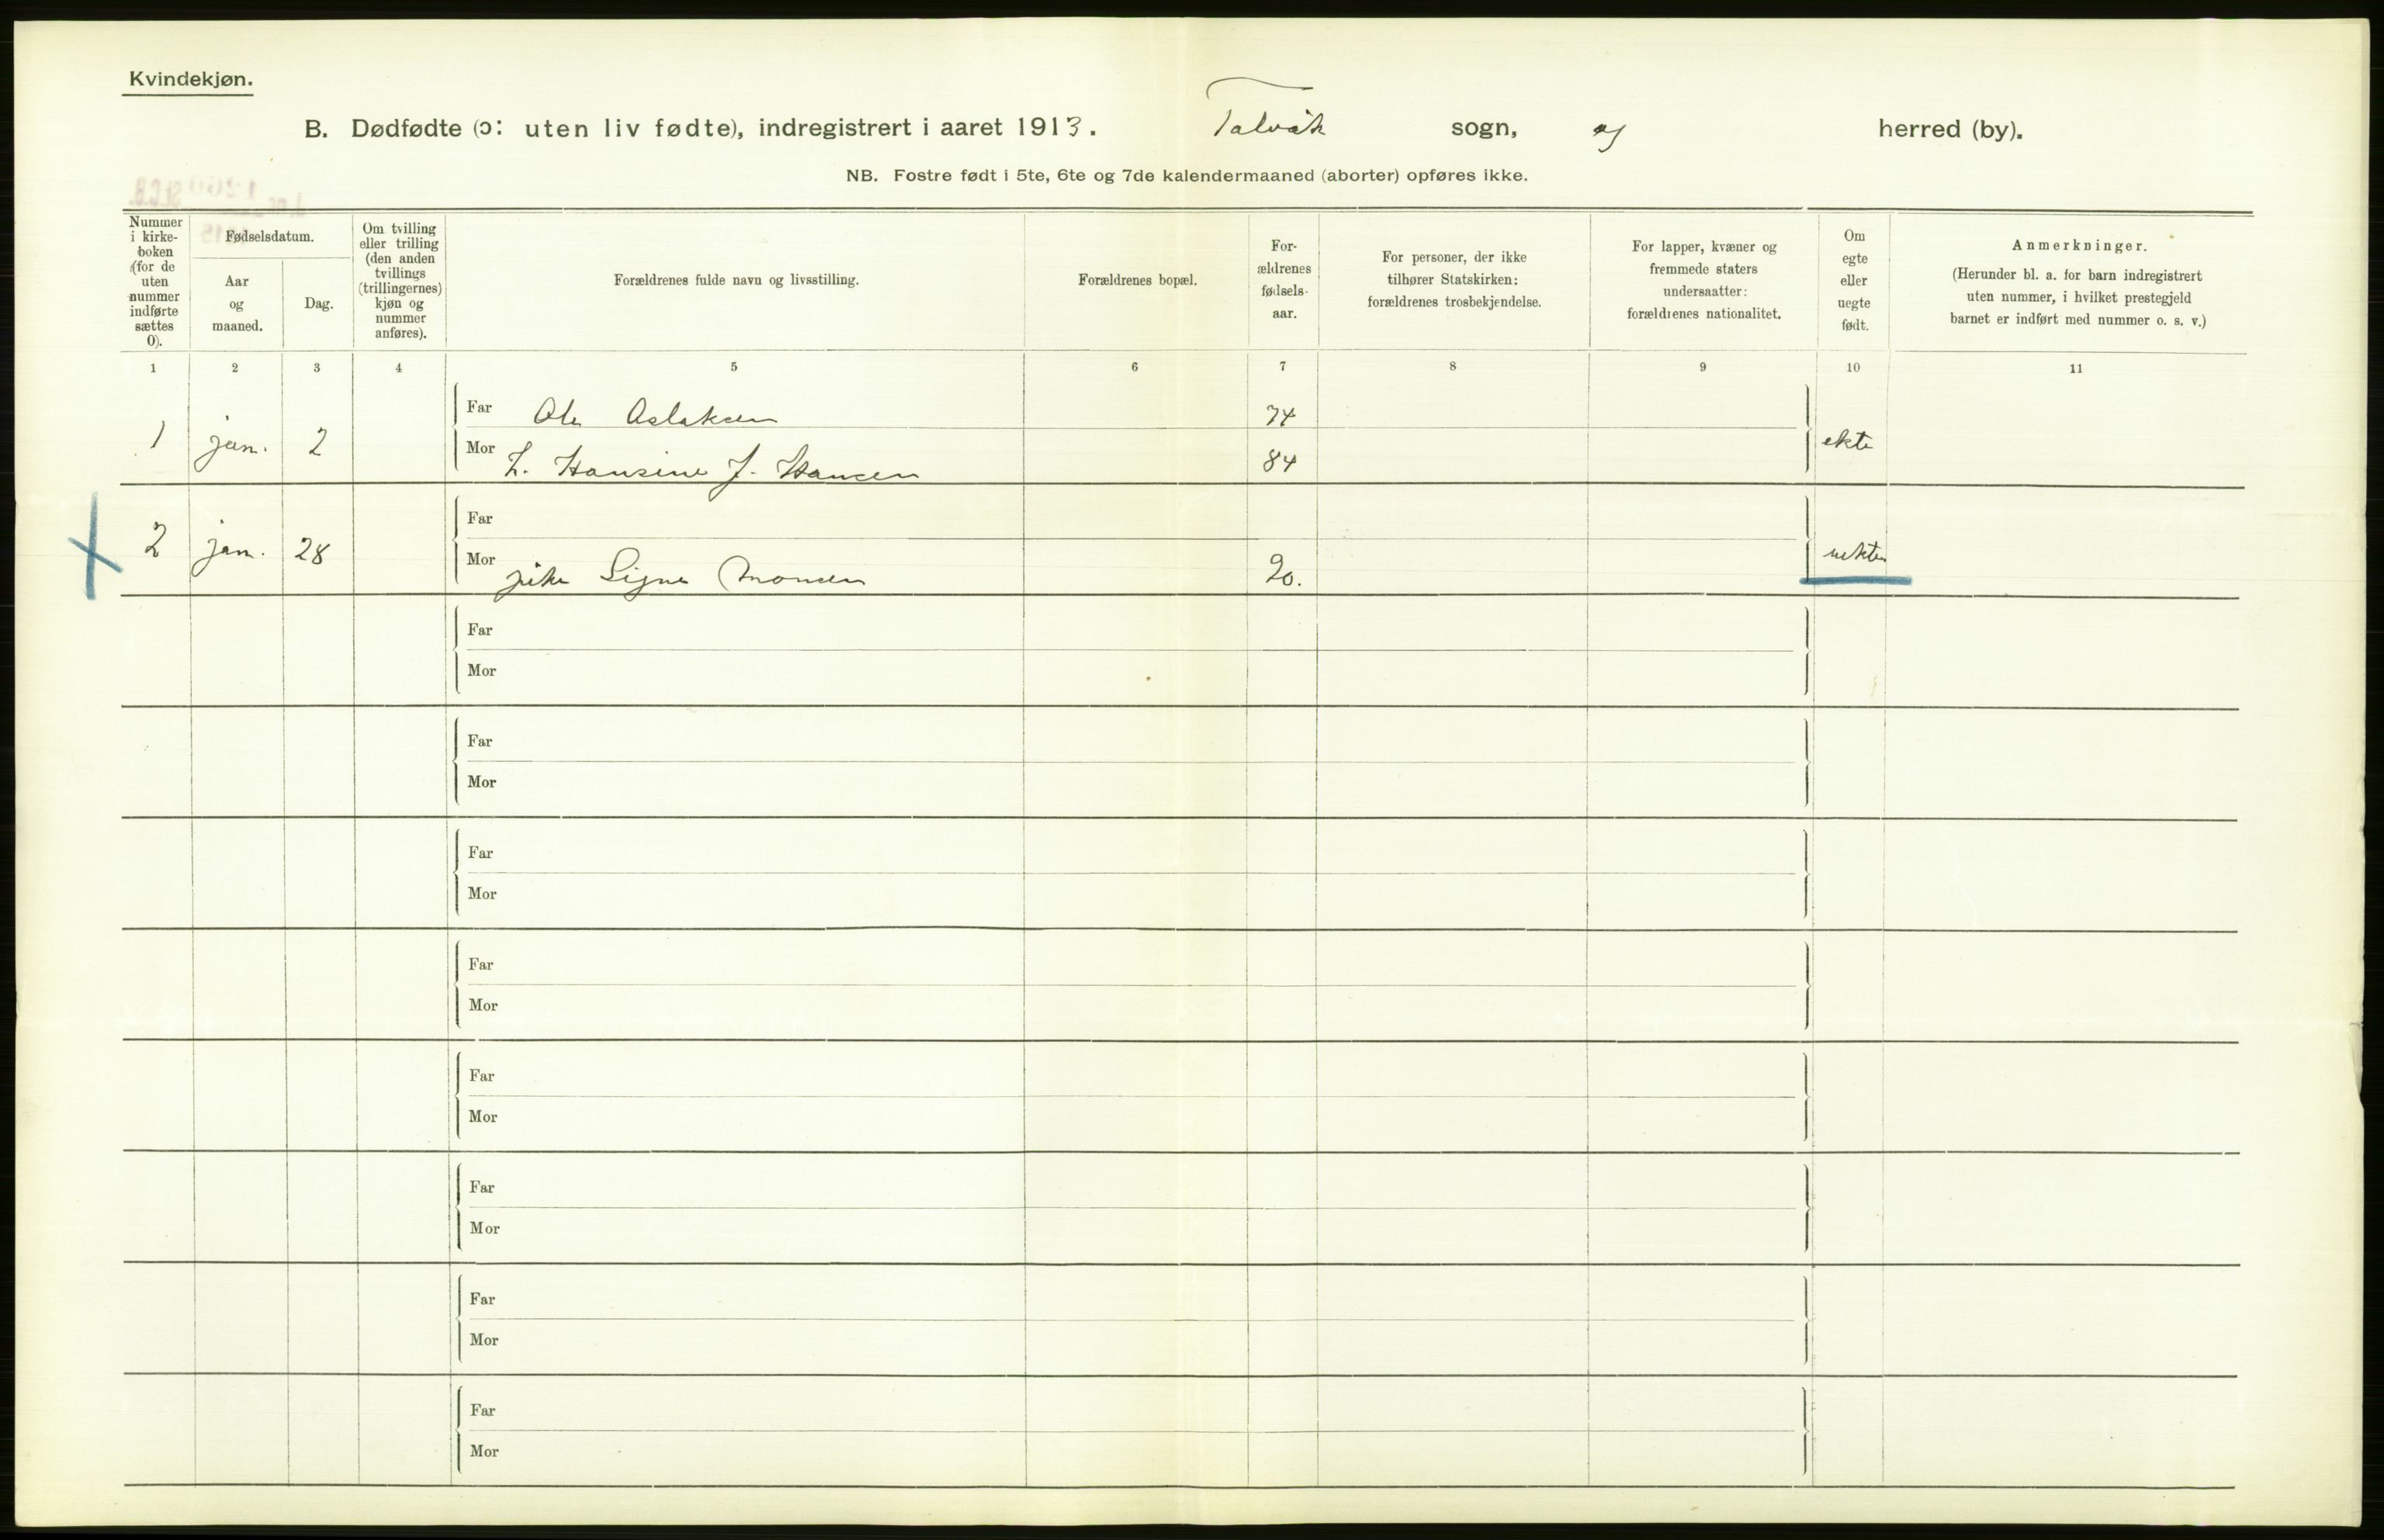 Kvindekjøn.
B. Dødfødte (ɔ: uten liv fødte), indregistrert i aaret 1913. Talvik sogn, og herred (by).
NB. Fostre født i 5te, 6te og 7de kalendermaaned (aborter) opføres ikke.
Nummer i kirke- boken (for de uten nummer indførte sættes 0).
Fødselsdatum.
Aar og maaned.
Dag.
Om tvilling eller trilling (den anden tvillings (trillingernes) kjøn og nummer anføres).
Forældrenes fulde navn og livsstilling.
Forældrenes bopæl.
For- ældrenes fødsels- aar.
For personer, der ikke tilhører Statskirken: forældrenes trosbekjendelse.
For lapper, kvæner og fremmede staters undersaatter: forældrenes nationalitet.
Om egte eller uegte født.
Anmerkninger.
(Herunder bl. a. for barn indregistrert uten nummer, i hvilket prestegjeld barnet er indført med nummer o. s. v.)
1 2 3 4 5 6 7 8 9 10 11
Far Ole Aslaksen 74
1 jan. 2 ekte
Mor L. Hansine J. Hansen 84
Far
2 jan. 28 uekte
Mor pike Signe Monsen 90.
Far
Mor
Far
Mor
Far
Mor
Far
Mor
Far
Mor
Far
Mor
Far
Mor
Far
Mor